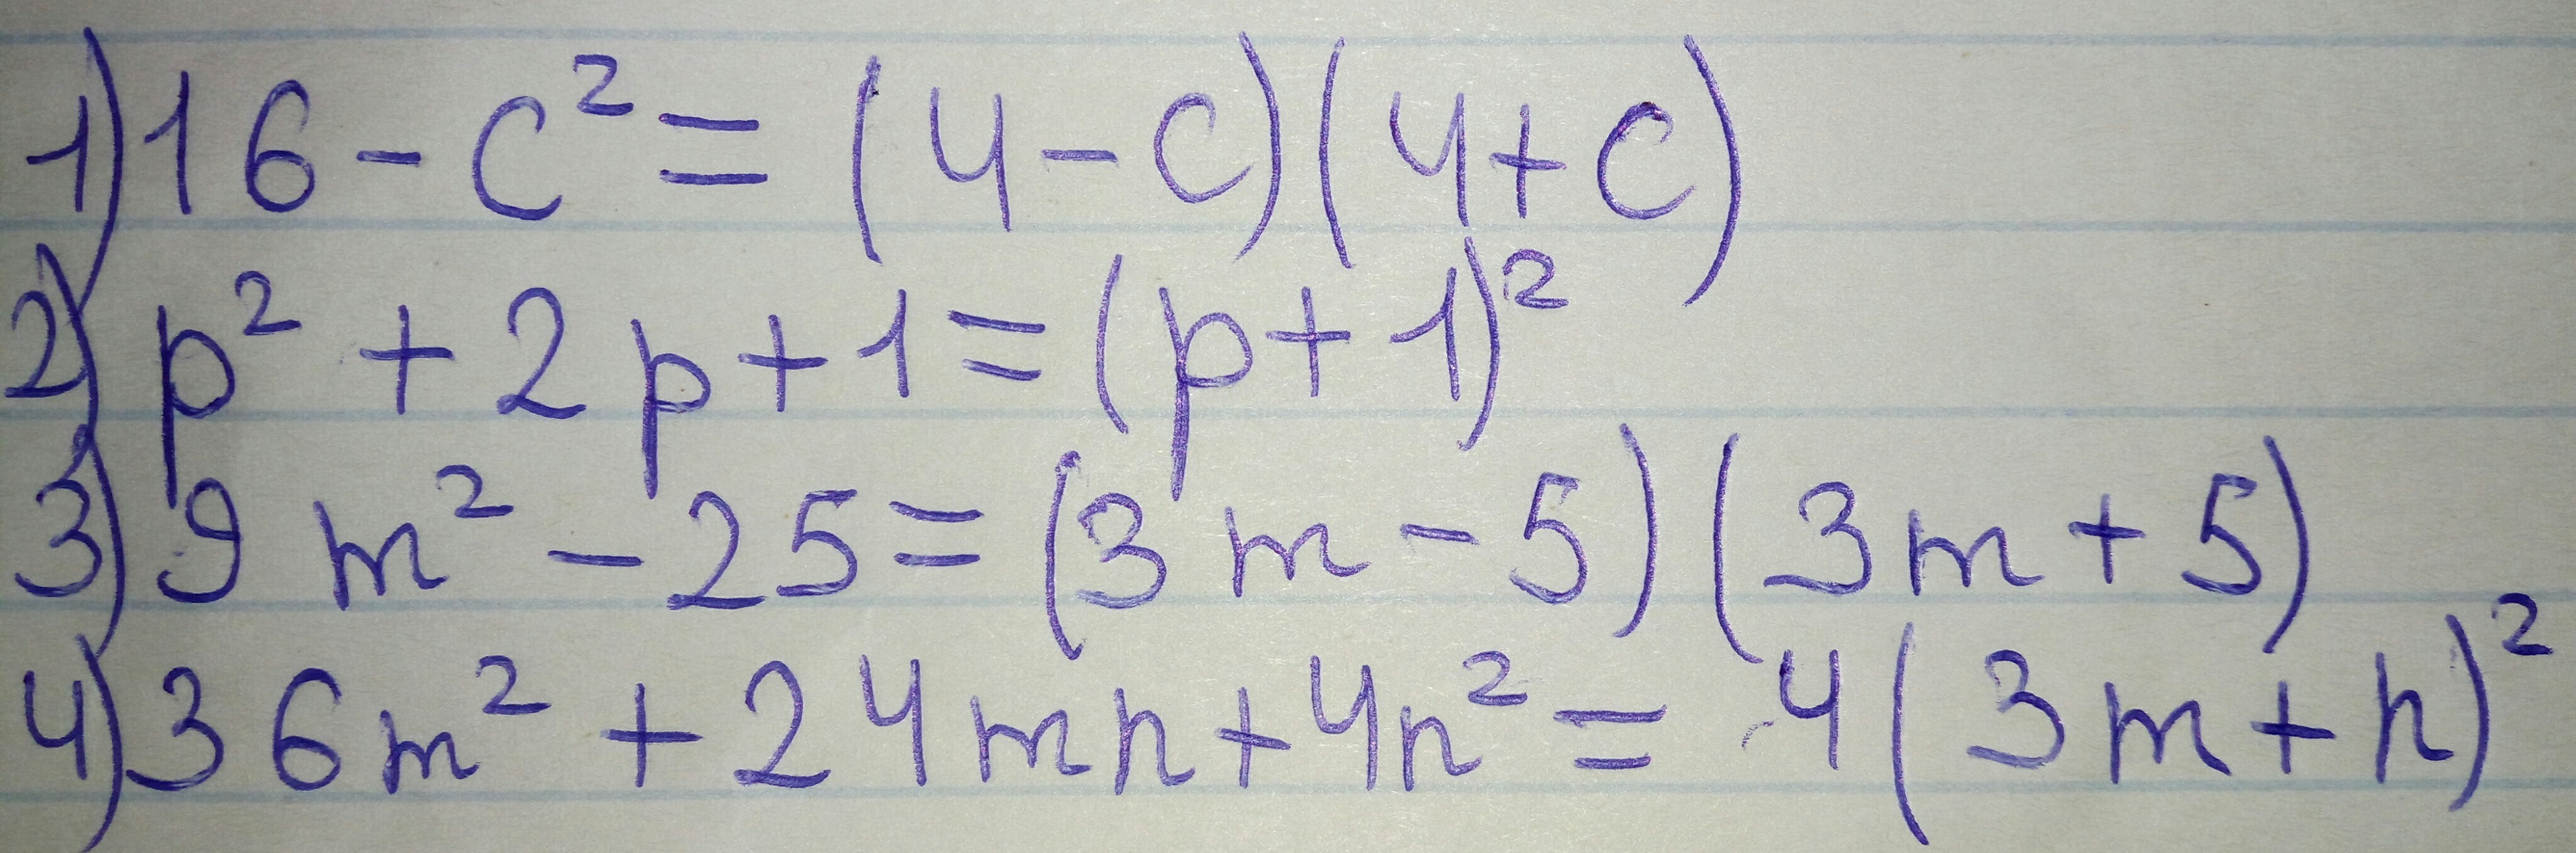 1) 16 - c² = (4 - c)(4 + c)
2) p² + 2p + 1 = (p + 1)²
3) 9m² - 25 = (3m - 5)(3m + 5)
4) 36m² + 24mn + 4n² = 4(3m + n)²